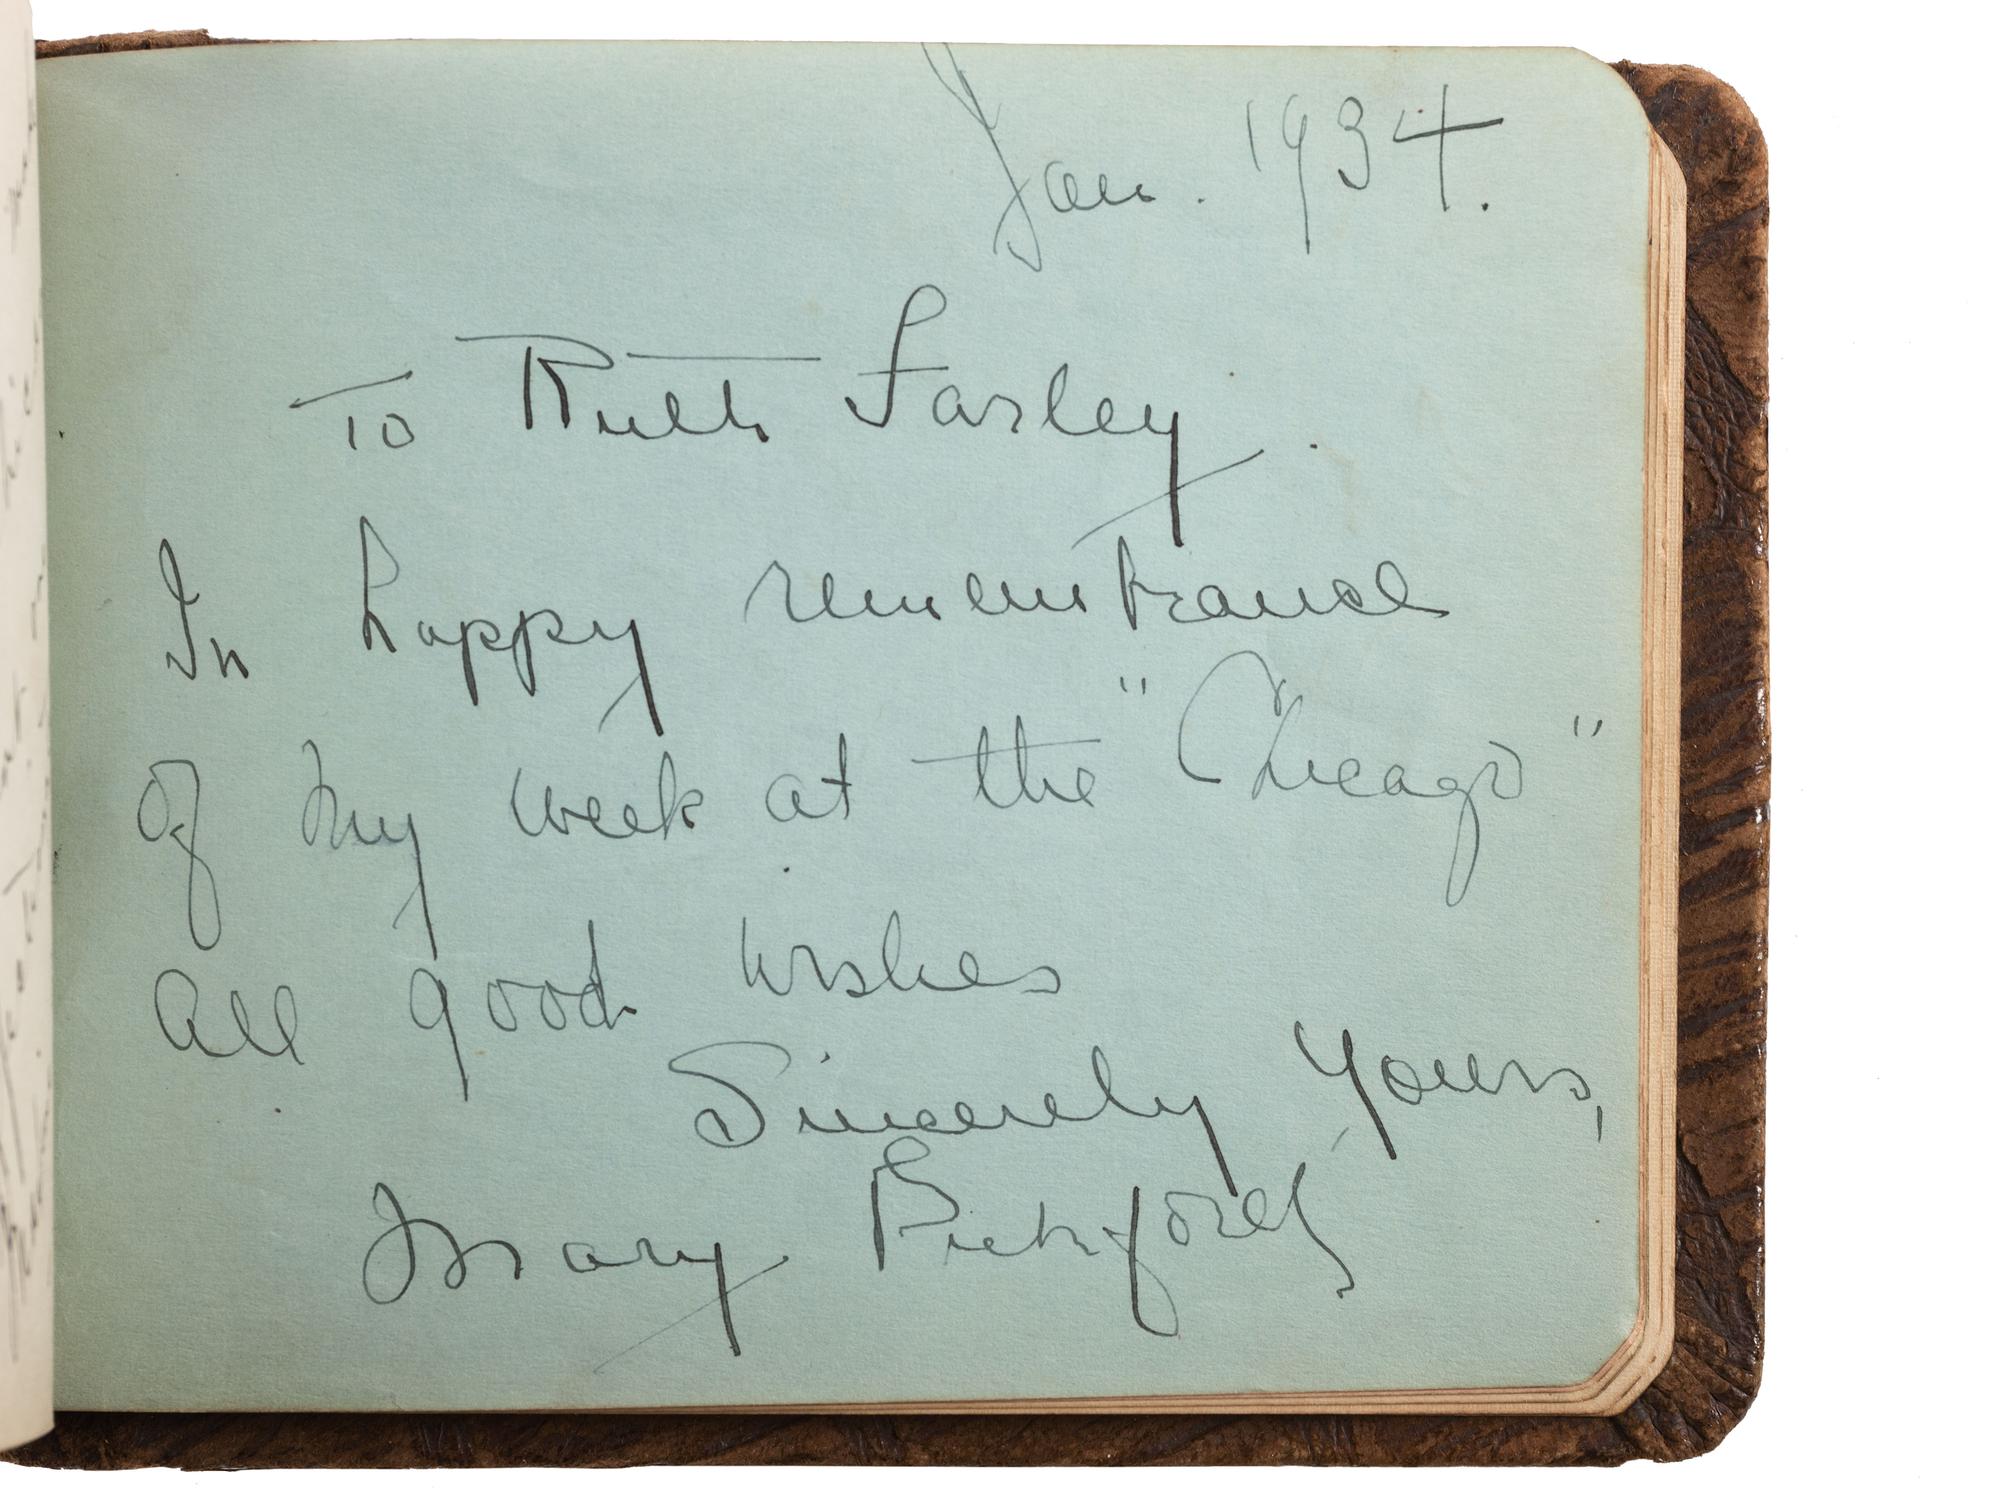 Jan. 1934.
To Ruth Farley.
In happy remembrance
of my week at the "Chicago"
All good wishes
Sincerely Yours,
Mary Pickford